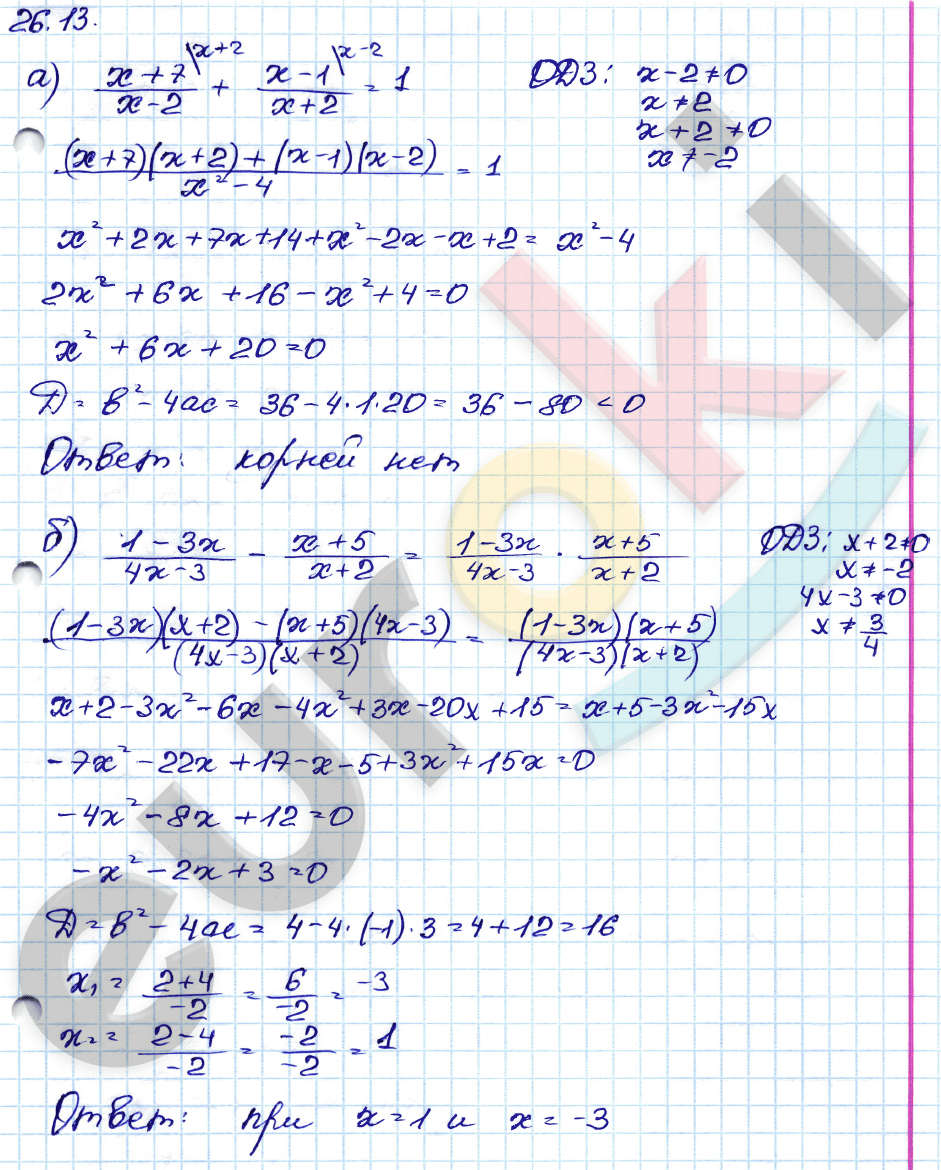 26.13.
а) \frac{x+7^{\x+2}}{x-2} + \frac{x-1^{\x-2}}{x+2} = 1   ОДЗ: x-2≠0
x≠2
x+2≠0
x≠-2
\frac{(x+7)(x+2)+(x-1)(x-2)}{x²-4} = 1
x²+2x+7x+14+x²-2x-x+2= x²-4
2x²+6x+16-x²+4=0
x²+6x+20=0
Д= в²-4ac= 36-4·1·20= 36-80<0
Ответ: корней нет
б) \frac{1-3x}{4x-3} - \frac{x+5}{x+2} = \frac{1-3x}{4x-3} · \frac{x+5}{x+2}   ОДЗ: x+2≠0
x≠-2
4x-3≠0
x≠\frac{3}{4}
\frac{(1-3x)(x+2)-(x+5)(4x-3)}{(4x-3)(x+2)} = \frac{(1-3x)(x+5)}{(4x-3)(x+2)}
x+2-3x²-6x-4x²+3x-20x+15= x+5-3x²-15x
-7x²-22x+17-x-5+3x²+15x=0
-4x²-8x+12=0
-x²-2x+3=0
Д=в²-4ac= 4-4·(-1)·3=4+12=16
x₁= \frac{2+4}{-2} = \frac{6}{-2} = -3
x₂= \frac{2-4}{-2} = \frac{-2}{-2} = 1
Ответ: при x=1 и x=-3
euroki